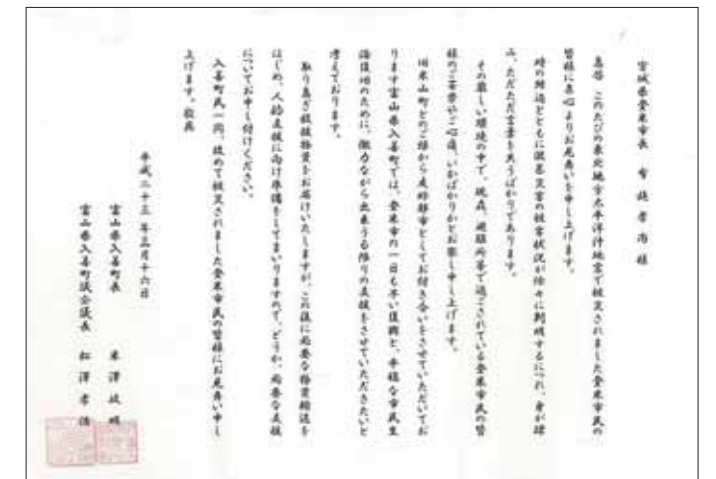 宮城県登米市長　布施孝尚　様
急啓　このたびの東北地方太平洋沖地震で被災されました登米市民の
皆様に衷心よりお見舞いを申し上げます。
時の経過とともに激甚災害の被害状況が徐々に判明するにつれ、身が
み、ただただ言葉を失うばかりであります。
その厳しい環境の中で、現在、避難所等で過ごされている登米市民の皆
様のご苦労やご心痛、いかばかりかとお察し申し上げます。
旧米山町とのご縁から友好都市としてお付き合いをさせていただいてお
ります富山県入善町では、登米市の一日も早い復興と、平穏な市民生
活復旧のために、微力ながら出来うる限りの支援をさせていただきたいと
考えております。
取り急ぎ救援物資をお届けいたしますが、この後に必要な物資輸送を
はじめ、人的支援に向け準備をしてまいりますので、どうか、必要な支援
についてお申し付けください。
入善町民一同、改めて被災されました登米市民の皆様にお見舞い申し
上げます。敬具
平成二十三年三月十六日
富山県入善町長　米澤政明
富山県入善町議会議長　松澤孝浩